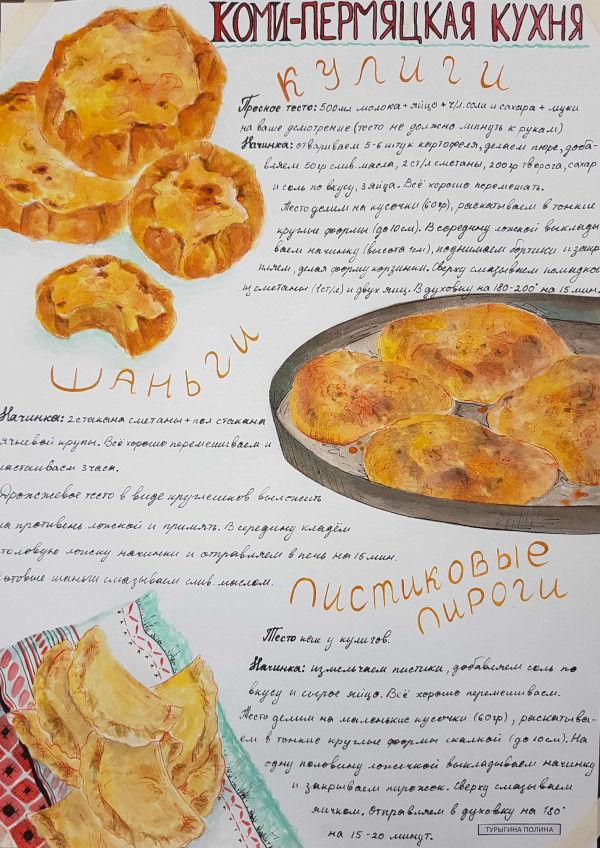 КОМИ-ПЕРМЯЦКАЯ КУХНЯ
КУЛИГИ
Пресное тесто: 500мл молока + яйцо + ч/л. соли и сахара + муки
на ваше усмотрение (тесто не должно льнуть к рукам)
Начинка: отвариваем 5-6 штук картофеля, делаем пюре, доба-
вляем 50гр слив. масла, 2 ст/л сметаны, 200гр творога, сахар
и соль по вкусу, 3 яйца. Всё хорошо перемешать.
Тесто делим на кусочки (60гр), раскатываем в тонкие
круглые формы (до 10см). В середину ложкой выклады
ваем начинку (высота 1см), поднимаем бортики и закр
пляем, делая форму корзинки. Сверху смазываем помадкой
из сметаны (1ст/л) и двух яиц. В духовку на 180-200° на 15 мин.
ШАНЬГИ
Начинка: 2 стакана сметаны + пол стакана
ячневой крупы. Всё хорошо перемешиваем и
настаиваем 3 часа.
Дрожжевое тесто в виде круглешков выложить
на противень ложкой и примять. В середину кладём
столовую ложку начинки и отправляем в печь на 15 мин.
Готовые шаньги смазываем слив. маслом.
ПИСТИКОВЫЕ
ПИРОГИ
Тесто как у кулигов.
Начинка: измельчаем пистики, добавляем соль по
вкусу и сырое яйцо. Всё хорошо перемешиваем.
Тесто делим на маленькие кусочки (60гр), раскатыва-
ем в тонкие круглые формы скалкой (до 10см). На
одну половину ложечкой выкладываем начинку
и закрываем пирожок. Сверху смазываем
яичком. Отправляем в духовку на 180°
на 15-20 минут.
ТУРЫГИНА ПОЛИНА